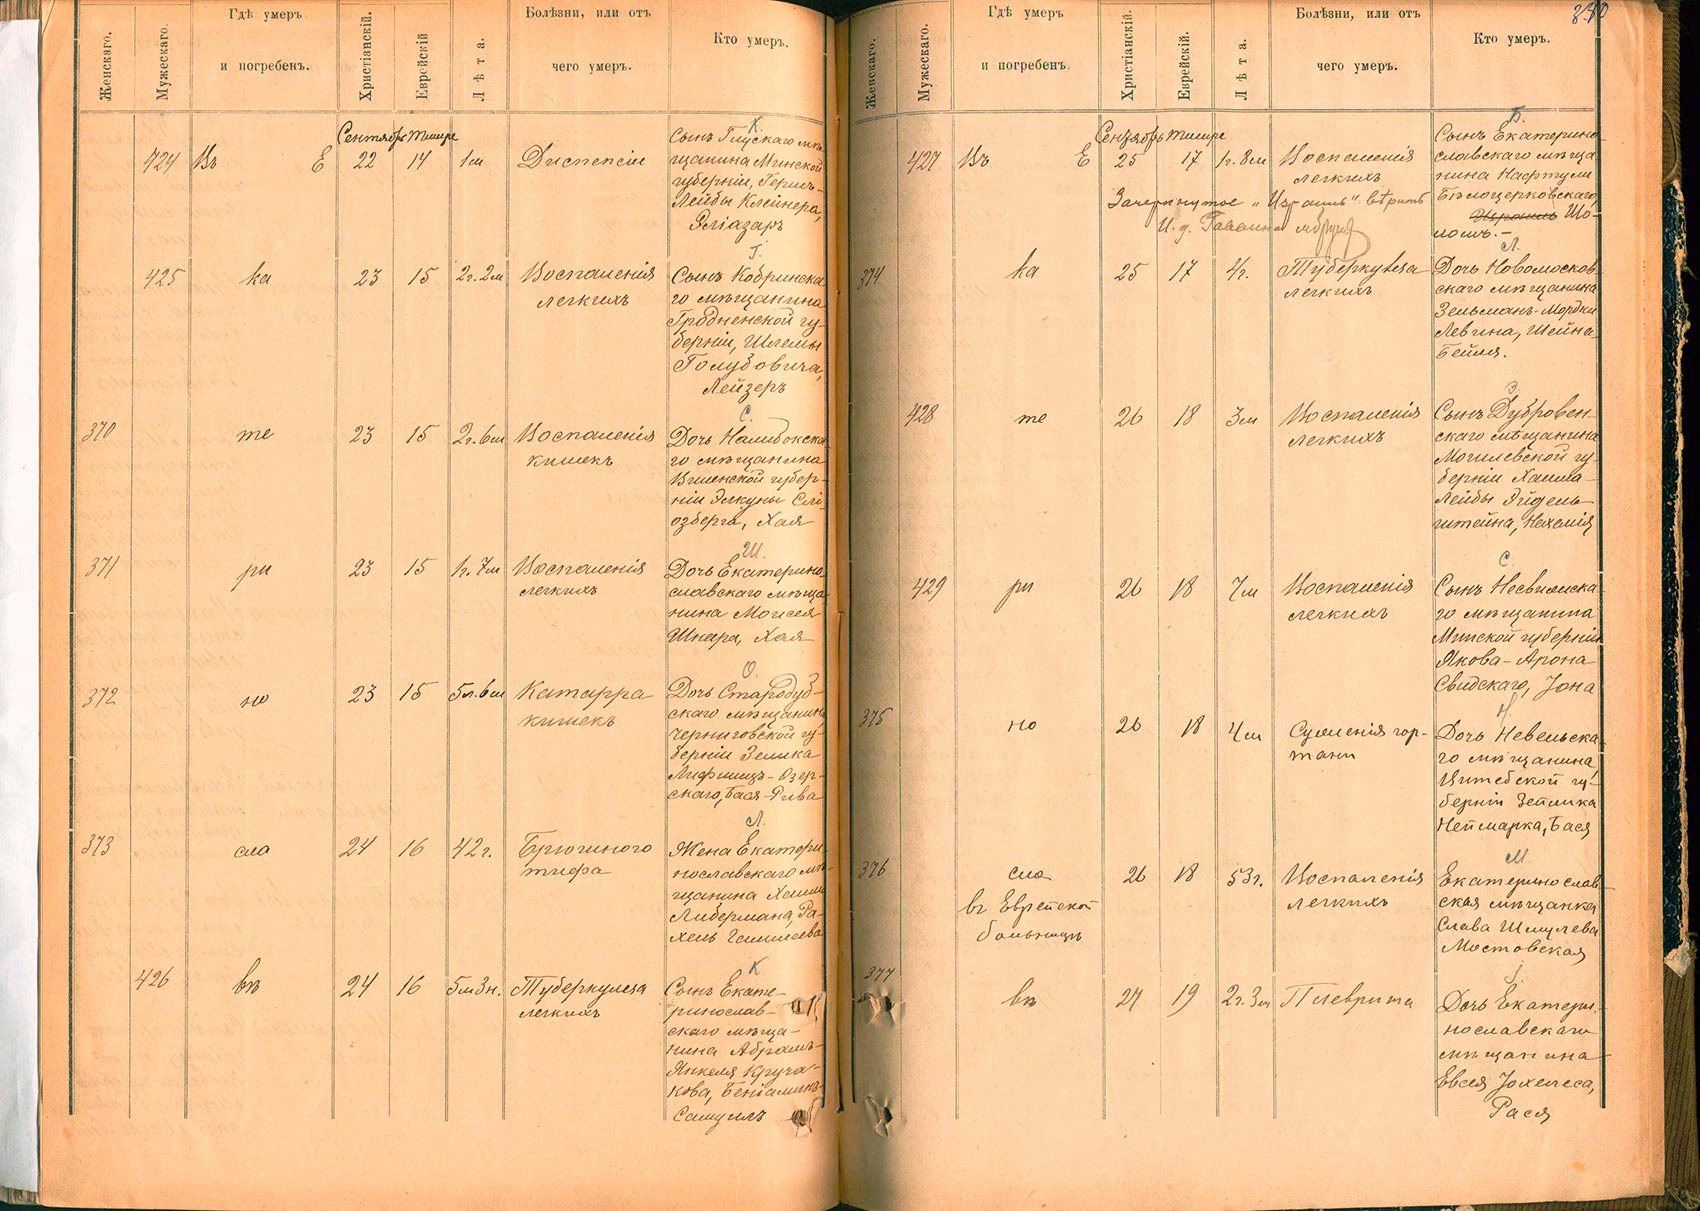 Женскаго.
Мужескаго.
Гдѣ умеръ
и погребенъ.
Христіанскій.
Еврейскій
Лѣта.
Болѣзни, или отъ
чего умеръ.
Кто умеръ.
Сентябрь Тишре
424 Въ Е 22 14 1 м Диспепсіи
К.
Сынъ Глускаго мѣ-
щанина Минской
губерніи, Герцъ-
Лейбы Клейнера,
Эліазаръ
425 ка 23 15 2 г. 2 м Воспаленія
легкихъ
Г.
Сынъ Кобринска
го мѣщанина
Гродненской гу-
берніи, Шлемы
Голубовича,
Лейзеръ
370 те 23 15 2 г. 6 м Воспаленія
кишекъ
С.
Дочь Налибокска
го мѣщанина
Виленской губер-
ніи Элкуны Слі-
озберга, Хая
371 ри 23 15 1 г. 7 м Воспаленія
легкихъ
Ш.
Дочь Екатерино
славскаго мѣща
нина Моисея
Шпара, Хая
372 но 23 15 5 л. 6 м Катарра
кишекъ
О.
Дочь Стародуб-
скаго мѣщанина
Черниговской гу-
берніи Зелика
Лифшицъ-Озер-
скаго, Бася-Рива
373 сла 24 16 42 г. Брюшного
тифа
Л.
Жена Екатери-
нославскаго мѣ-
щанина Хаима
Либермана, Ра-
хель
426 въ 24 16 5 м 3 н. Туберкулеза
легкихъ
К
Сынъ Екате-
ринослав-
скаго мѣща-
нина Абрамъ-
Янкеля Круча-
кова, Беніаминъ-
Самуилъ
Женскаго.
Мужескаго.
Гдѣ умеръ
и погребенъ.
Христіанскій.
Еврейскій.
Лѣта.
Болѣзни, или отъ
чего умеръ.
Кто умеръ.
Сентябрь Тишре
427 Въ Е 25 17 1 г. 8 м Воспаленія
легкихъ
Зачеркнутое „Израиль" вѣрить
И. д. Раввина
Б.
Сынъ Екатерино
славскаго мѣща
нина Нафтули
Бѣлоцерковскаго,
Израиль Шо-
ломъ.-
374 ка 25 17 4 г. Туберкулеза
легкихъ
Л.
Дочь Новомосков
скаго мѣщанина
Зельманъ-Мордки
Левина, Шейна
Бейля.
428 те 26 18 3 м Воспаленія
легкихъ
Э.
Сынъ Дубровен-
скаго мѣщанина
Могилевской гу-
берніи Хаима-
Лейбы Эйдель-
штейна, Нехемія
429 ри 26 18 7 м Воспаленія
легкихъ
С.
Сынъ Несвижска-
го мѣщанина
Минской губерніи
Якова-Арона
Свидскаго, Іона
375 но 26 18 4 м Суженія гор-
тани
Н.
Дочь Невельска-
го мѣщанина
Витебской гу-
берніи Зейлика
Неймарка, Бася
376 сла 26 18 53 г. Воспаленія
легкихъ
въ Еврейской
больницѣ
М.
Екатеринослав-
ская мѣщанка
Слава Шмулева
Мостовская
377 въ 27 19 2 г. 3 м Плеврита
І.
Дочь Екатери-
нославскаго
мѣщанина
Евсея Іохелеса,
Рася